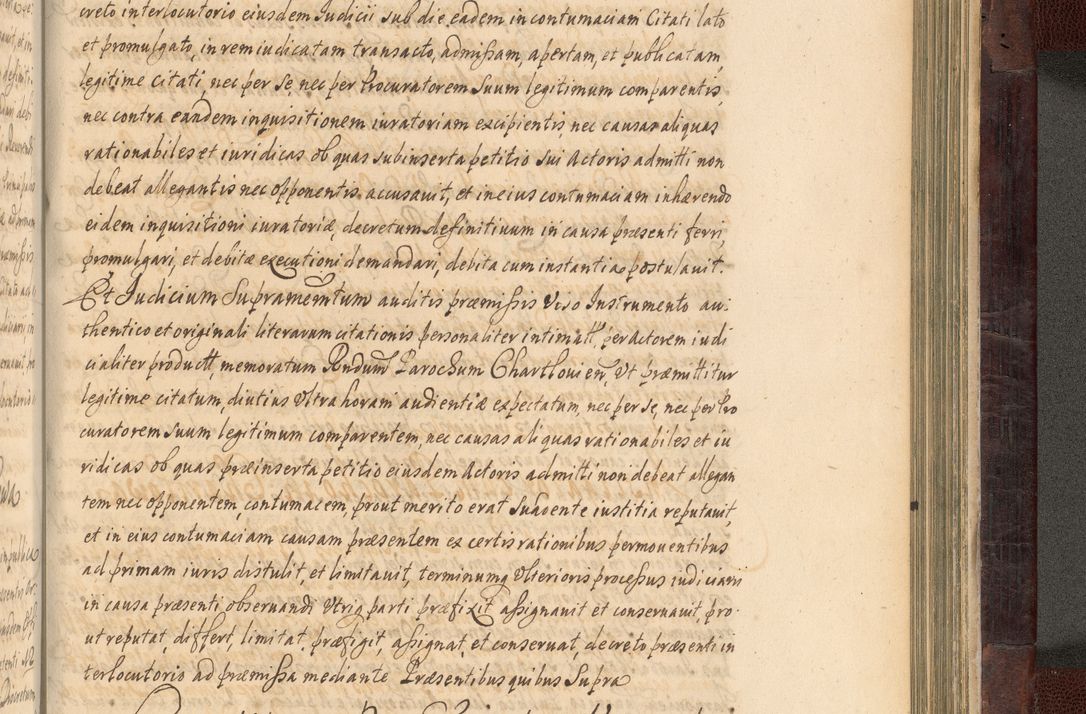 creto interlocutorio eiusdem Iudicii sub die eadem in contumaciam Citati lato
et promulgato, in rem iudicatam transacto, admissam, apertam, et publicatam,
legitime citati, nec per se, nec per Procuratorem Suum legitimum comparentis,
nec contra eandem inquisitionem iuratoriam excipientis, nec causas aliquas
rationabiles et iuridicas ob quas subinserta petitio sui Actoris admitti non
debeat allegantis nec opponentis, accusauit, et in eius contumaciam inhærendo
eidem inquisitioni iuratoriæ, decretum definitiuum in causa præsenti ferri,
promulgari, et debitæ executioni demandari, debita cum instantia postulauit.
Et Iudicium Supramemtum auditis præmissis Viso Instrumento au-
thentico et originali literarum citationis personaliter intimatt, per Actorem iudi
cialiter productt, memoratum Rndum Parochum Chartlouien, Vt præmittitur
legitime citatum, diutius Vltra horam audientiæ expectatum, nec per se, nec per Pro
curatorem suum legitimum comparentem, nec causas aliquas rationabiles et iu
ridicas ob quas præinserta petitio eiusdem Actoris admitti non debeat allegan
tem nec opponentem, contumacem, prout merito erat Suadente iustitia reputauit,
et in eius contumaciam causam præsentem ex certis rationibus permouentibus
ad primam iuris distulit, et limitauit, terminumq Vlterioris processus iudiciarii
in causa præsenti obseruandi Vtriq parti præfixit assignauit et conseruauit, pro-
ut reputat, differt, limitat, præfigit, assignat, et conseruat, decreto præsenti in
terlocutorio ad præmissa mediante Præsentibus quibus Supra